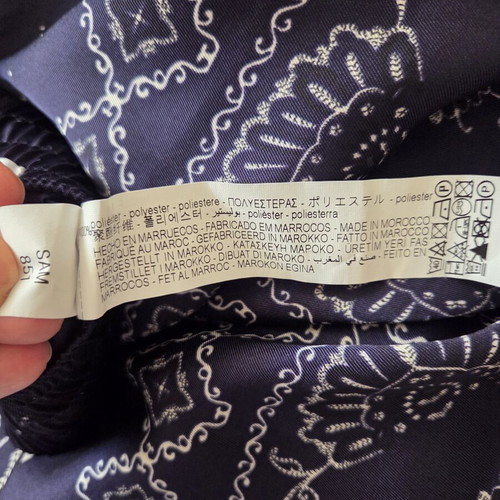 polyester - poliestere - ΠΟΛΥΕΣΤΕΡΑΣ - ポリエステル - poliester
폴리에스터 - بوليستير - polièster - poliesterra
HECHO EN MARRUECOS - FABRICADO EM MARROCOS - MADE IN MOROCCO
FABRIQUÉ AU MAROC - GEFABRICEERD IN MAROKKO - FATTO IN MAROCCO
HERGESTELLT IN MAROKKO - ΚΑΤΑΣΚΕΥΗ ΜΑΡΟΚΟ - ÜRETİM YERİ FAS
FREMSTILLET I MAROKKO - DIBUAT DI MAROKO - صنع في المغرب - FEITO EN
MARROCOS - FET AL MARROC - MAROKON EGINA
SAM